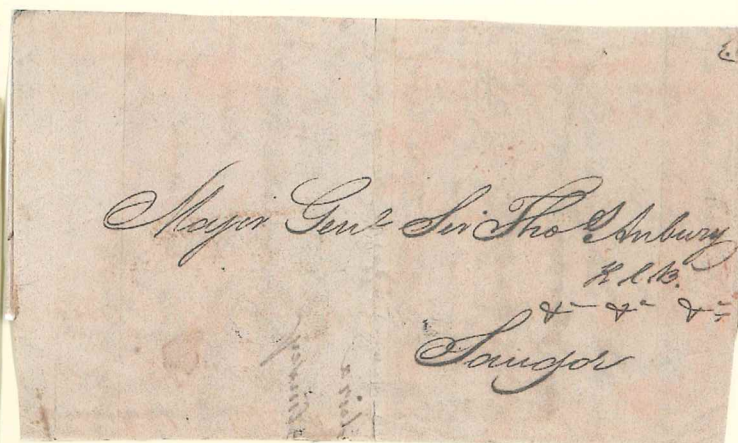 Major Genl Sir Thos Anbury
K.C.B.
&c &c &c
Saugor